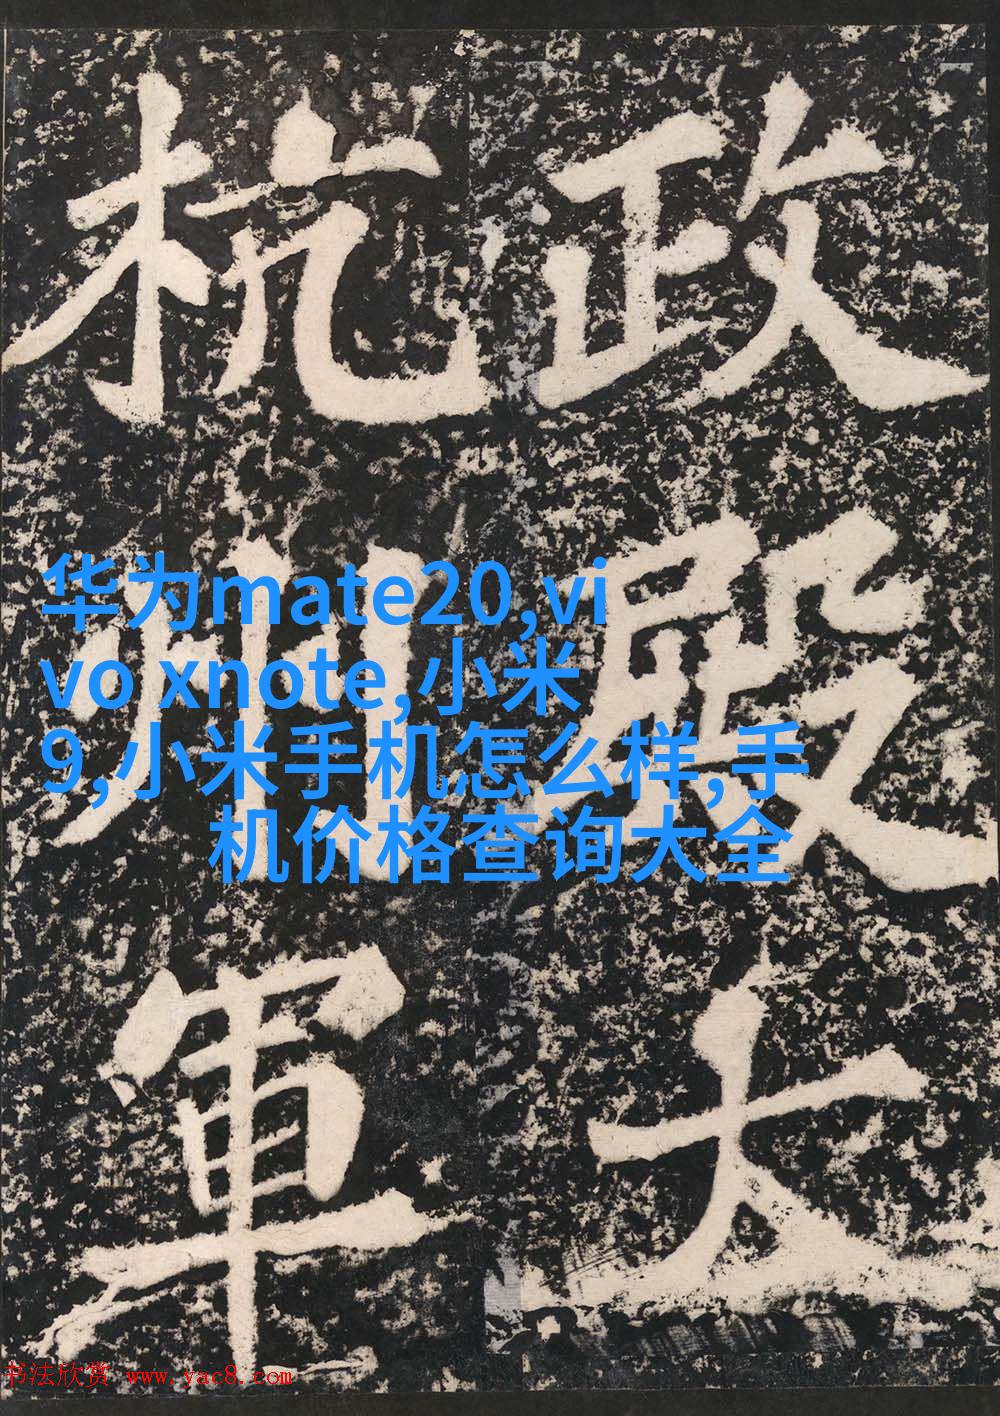 政殿大
杭州軍
华为mate20,vi
vo xnote,小米
9,小米手机怎么样,手
机价格查询大全
书法欣赏 www.yac8.com